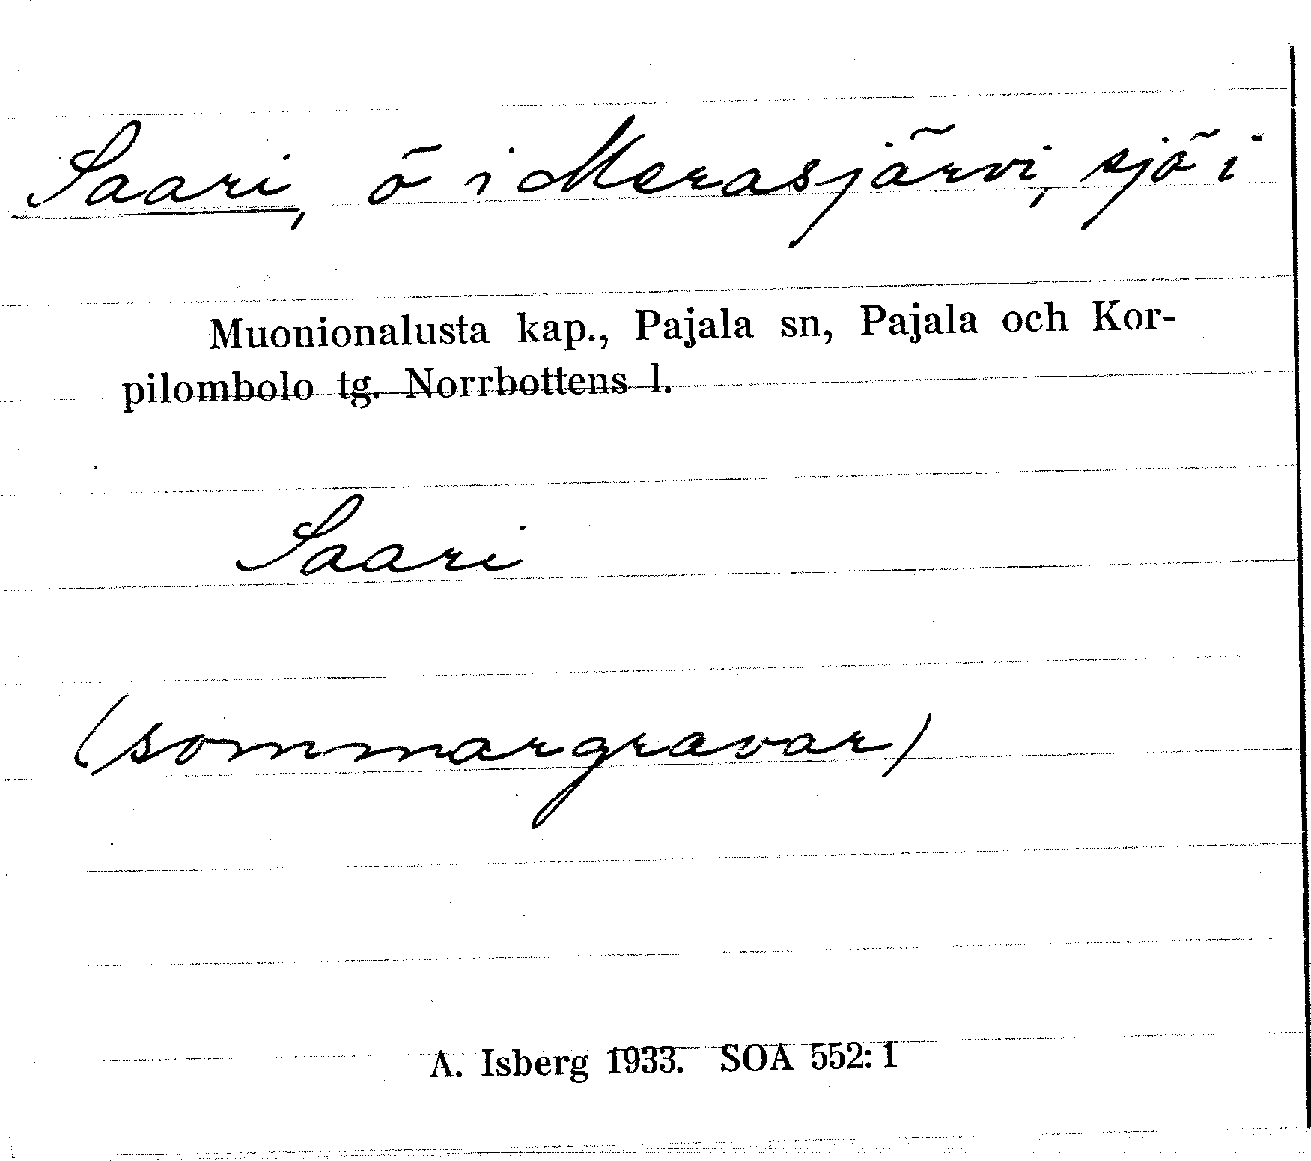 Saari, ö i Merasjärvi, sjö i
Muonionalusta kap., Pajala sn, Pajala och Kor-
pilombolo tg. Norrbottens l.
Saari
(sommargravar)
A. Isberg 1933. SOA 552: 1